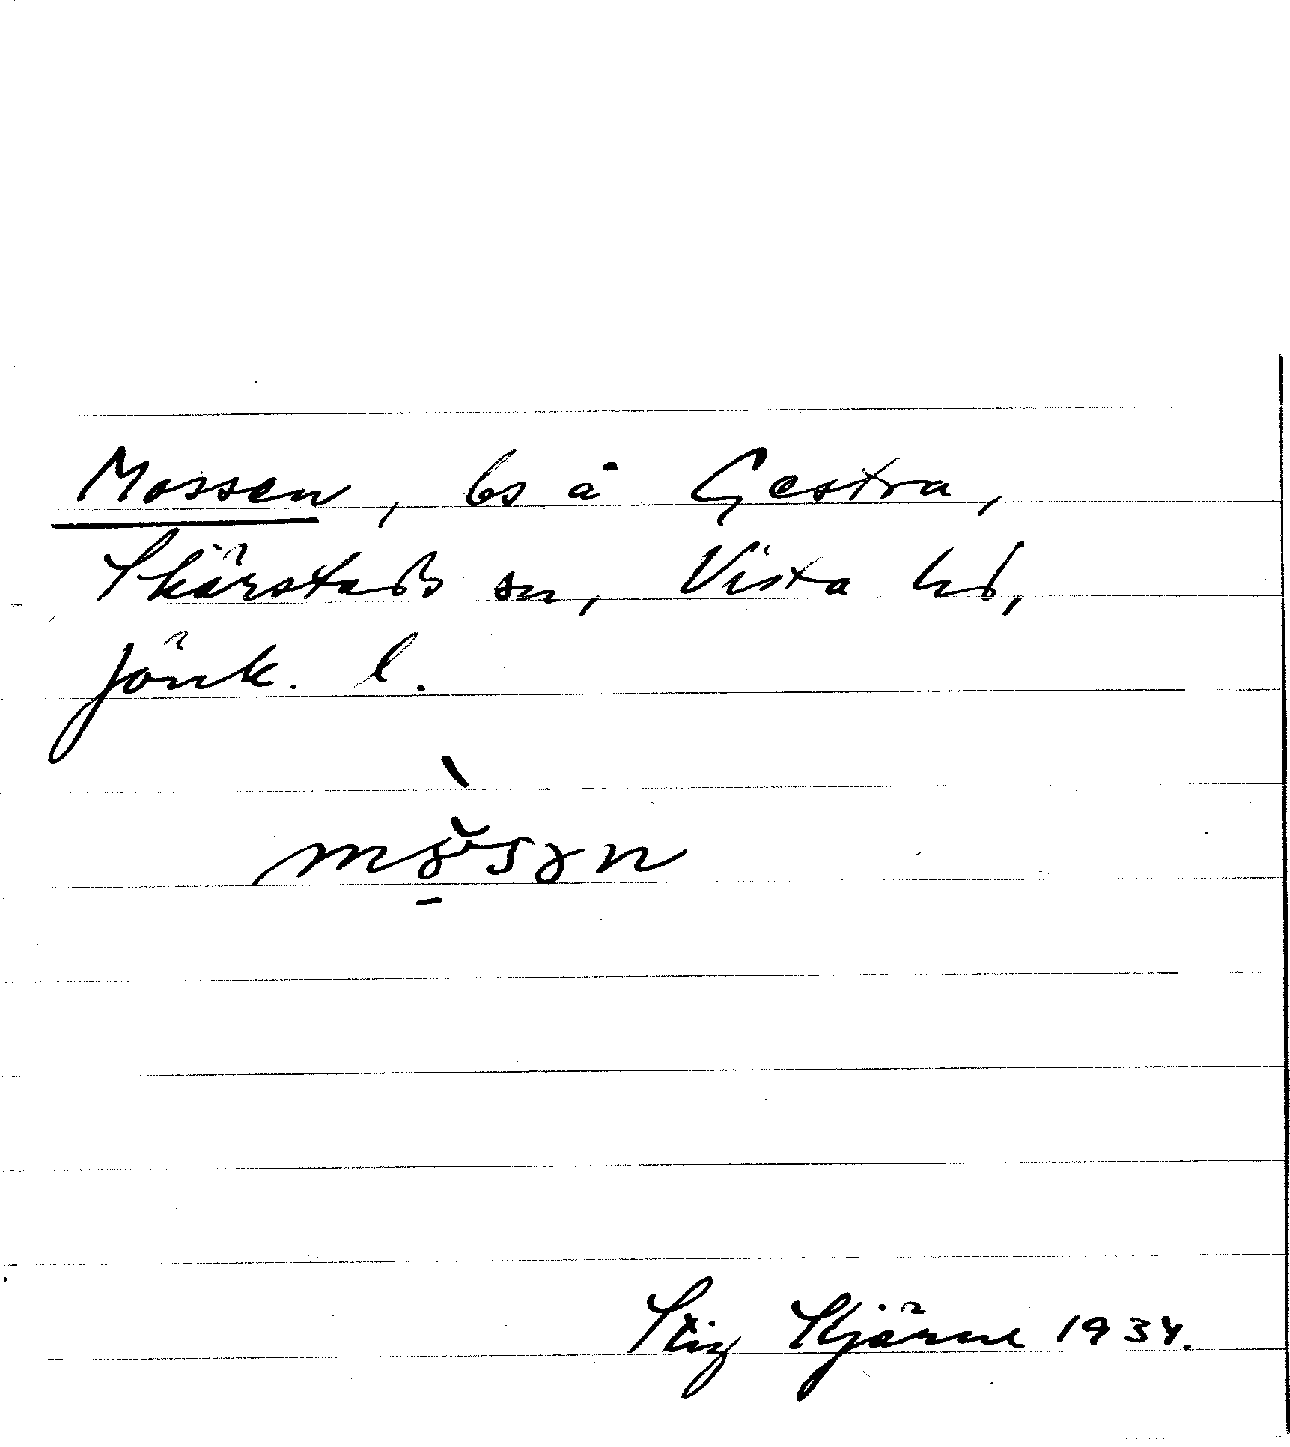 Mossen, bs å Gestra,
Skärstads sn, Vista hd,
Jönk. l.
Stig Stjärne 1934.